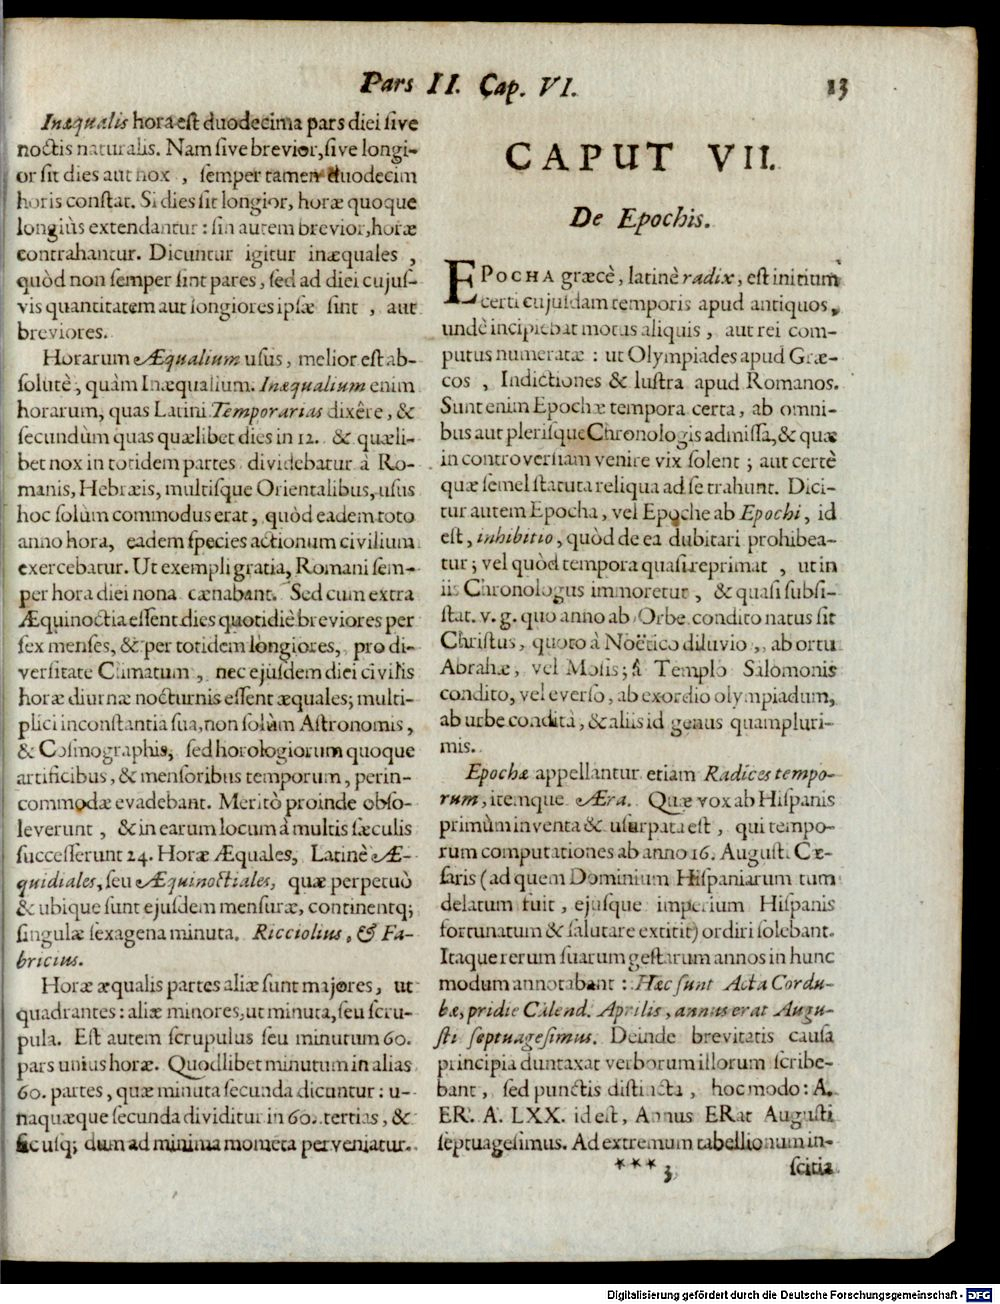 Pars II. Cap. VI. 13
Inæqualis hora est duodecima pars diei sive
noctis naturalis. Nam sive brevior, sive longi-
or sit dies aut nox , semper tamen duodecim
horis constat. Si dies sit longior, horæ quoque
longiùs extendantur : sin autem brevior, horæ
contrahantur. Dicuntur igitur inæquales ,
quòd non semper sint pares , sed ad diei cujus-
vis quantitatem aut longiores ipsæ sint , aut
breviores.
Horarum Æqualium usus , melior est ab-
solutè , quàm Inæqualium. Inæqualium enim
horarum, quas Latini Temporarias dixêre, &
secundùm quas quælibet dies in 12. & quæli-
bet nox in totidem partes dividebatur à Ro-
manis, Hebræis, multisque Orientalibus, usus
hoc solùm commodus erat , quòd eadem toto
anno hora, eadem species actionum civilium
exercebatur. Ut exempli gratia, Romani sem-
per hora diei nona cænabant. Sed cum extra
Æquinoctia essent dies quotidiè breviores per
sex menses, & per totidem longiores, pro di-
versitate Climatum , nec ejusdem diei civilis
horæ diurnæ nocturnis essent æquales; multi-
plici inconstantia sua, non solùm Astronomis ,
& Cosmographis, sed horologiorum quoque
artificibus, & mensoribus temporum, perin-
commodæ evadebant. Meritò proinde obso-
leverunt , & in earum locum à multis sæculis
successerunt 24. Horæ Æquales, Latinè Æ-
quidiales, seu Æquinoctiales, quæ perpetuò
& ubique sunt ejusdem mensuræ, continentq;
singulæ sexagena minuta. Ricciolius, & Fa-
bricius.
Horæ æqualis partes aliæ sunt majores, ut
quadrantes : aliæ minores, ut minuta, seu scru-
pula. Est autem scrupulus seu minutum 60.
pars unius horæ. Quodlibet minutum in alias
60. partes, quæ minuta secunda dicuntur : u-
naquæque secunda dividitur in 60. tertias, &
sic usq; dum ad minima momēta perveniatur.
CAPUT VII.
De Epochis.
EPOCHA græcè, latinè radix, est initium
certi cujusdam temporis apud antiquos,
undè incipiebat motus aliquis , aut rei com-
putus numeratæ : ut Olympiades apud Græ-
cos , Indictiones & lustra apud Romanos.
Sunt enim Epochæ tempora certa, ab omni-
bus aut plerisque Chronologis admissa, & quæ
in controversiam venire vix solent ; aut certè
quæ semel statuta reliqua ad se trahunt. Dici-
tur autem Epocha, vel Epoche ab Epochi, id
est, inhibitio, quòd de ea dubitari prohibea-
tur ; vel quòd tempora quasi reprimat , ut in
iis Chronologus immoretur , & quasi subsi-
stat. v. g. quo anno ab Orbe condito natus sit
Christus, quoto à Noëtico diluvio , ab ortu
Abrahæ, vel Mosis; â Templo Salomonis
condito, vel everso, ab exordio olympiadum,
ab urbe condità, & aliis id genus quampluri-
mis.
Epochæ appellantur etiam Radices tempo-
rum, itemque Æra. Quæ vox ab Hispanis
primùm inventa & usurpata est , qui tempo-
rum computationes ab anno 16. Augusti Cæ-
saris (ad quem Dominium Hispaniarum tum
delatum fuit , ejusque imperium Hispanis
fortunatum & salutare extitit) ordiri solebant.
Itaque rerum suarum gestarum annos in hunc
modum annotabant : Hæc sunt Acta Cordu-
bæ, pridie Calend. Aprilis, annus erat Augu-
sti septuagesimus. Deinde brevitatis causa
principia duntaxat verborum illorum scribe-
bant , sed punctis distincta , hoc modo : A.
ER. A. LXX. id est, Annus ERat Augusti
septuagesimus. Ad extremum tabellionum in-
*** 3 scitia
Digitalisierung gefördert durch die Deutsche Forschungsgemeinschaft - DFG